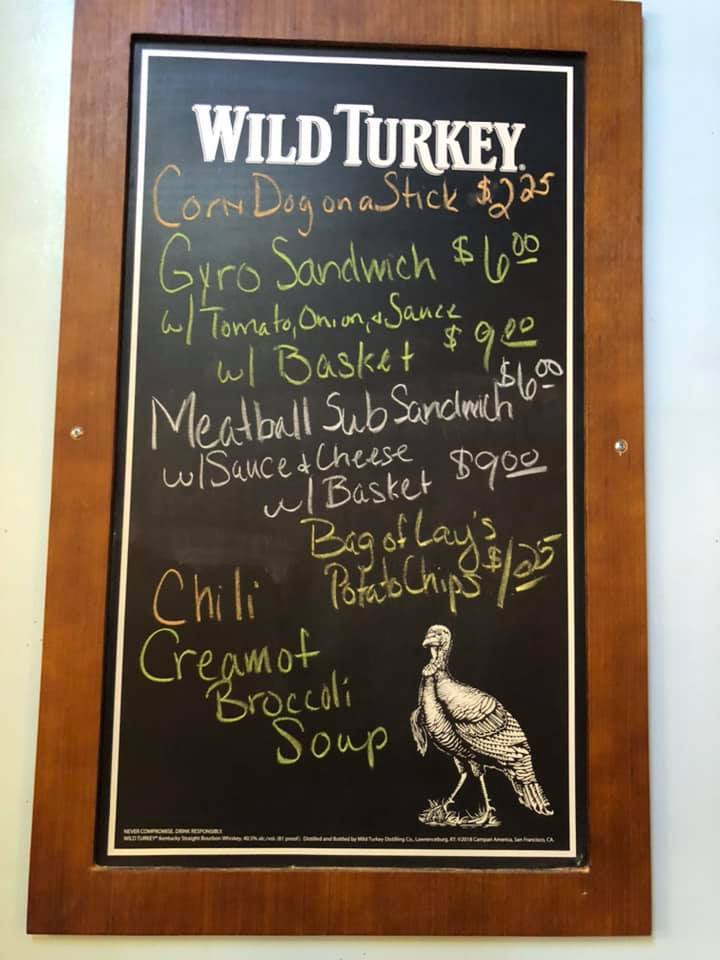 WILD TURKEY
Corn Dog on a Stick $2.25
Gyro Sandwich $6.00
w/ Tomato, Onion, & Sauce
w/ Basket $9.00
Meatball Sub Sandwich $6.00
w/ Sauce & Cheese
w/ Basket $9.00
Bag of Lay's
Potato Chips $1.25
Chili
Cream of
Broccoli
Soup
NEVER COMPROMISE. DRINK RESPONSIBLY.
WILD TURKEY® Kentucky Straight Bourbon Whiskey, 40.5% alc./vol. (81 proof). Distilled and Bottled by Wild Turkey Distilling Co., Lawrenceburg, KY. ©2018 Campari America, San Francisco, CA.